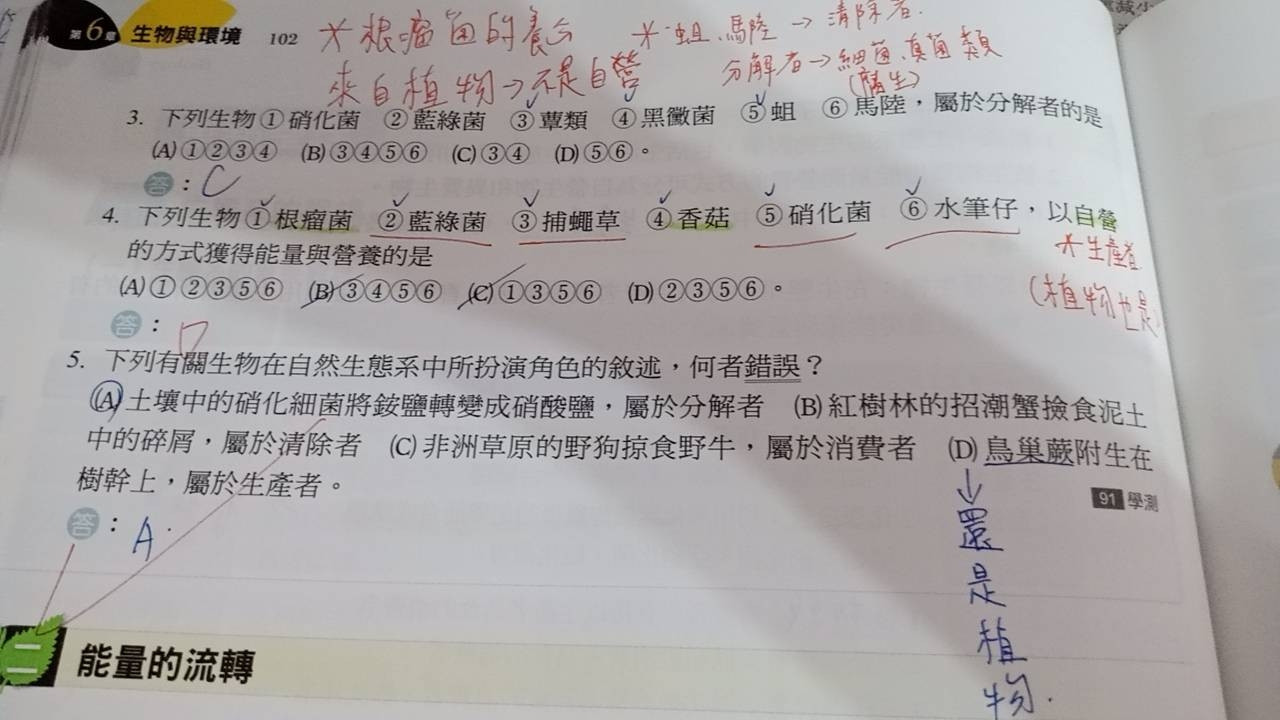 第6章 生物與環境 102
*根瘤菌的養分
來自植物→不是自營
*蛆、馬陸→清除者.
分解者→細菌、真菌類
(腐生)
3. 下列生物①硝化菌 ②藍綠菌 ③蕈類 ④黑黴菌 ⑤蛆 ⑥馬陸,屬於分解者的是
(A)①②③④ (B)③④⑤⑥ (C)③④ (D)⑤⑥。
答:C
4. 下列生物①根瘤菌 ②藍綠菌 ③捕蠅草 ④香菇 ⑤硝化菌 ⑥水筆仔,以自營
的方式獲得能量與營養的是
*生產者
(植物也是)
(A)①②③⑤⑥ (B)③④⑤⑥ (C)①③⑤⑥ (D)②③⑤⑥。
答:D
5. 下列有關生物在自然生態系中所扮演角色的敘述,何者錯誤?
(A)土壤中的硝化細菌將銨鹽轉變成硝酸鹽,屬於分解者 (B)紅樹林的招潮蟹撿食泥土
中的碎屑,屬於清除者 (C)非洲草原的野狗掠食野牛,屬於消費者 (D)鳥巢蕨附生在
樹幹上,屬於生產者。
91 學測
答:A.
↓
還
是
植
物.
二 能量的流轉